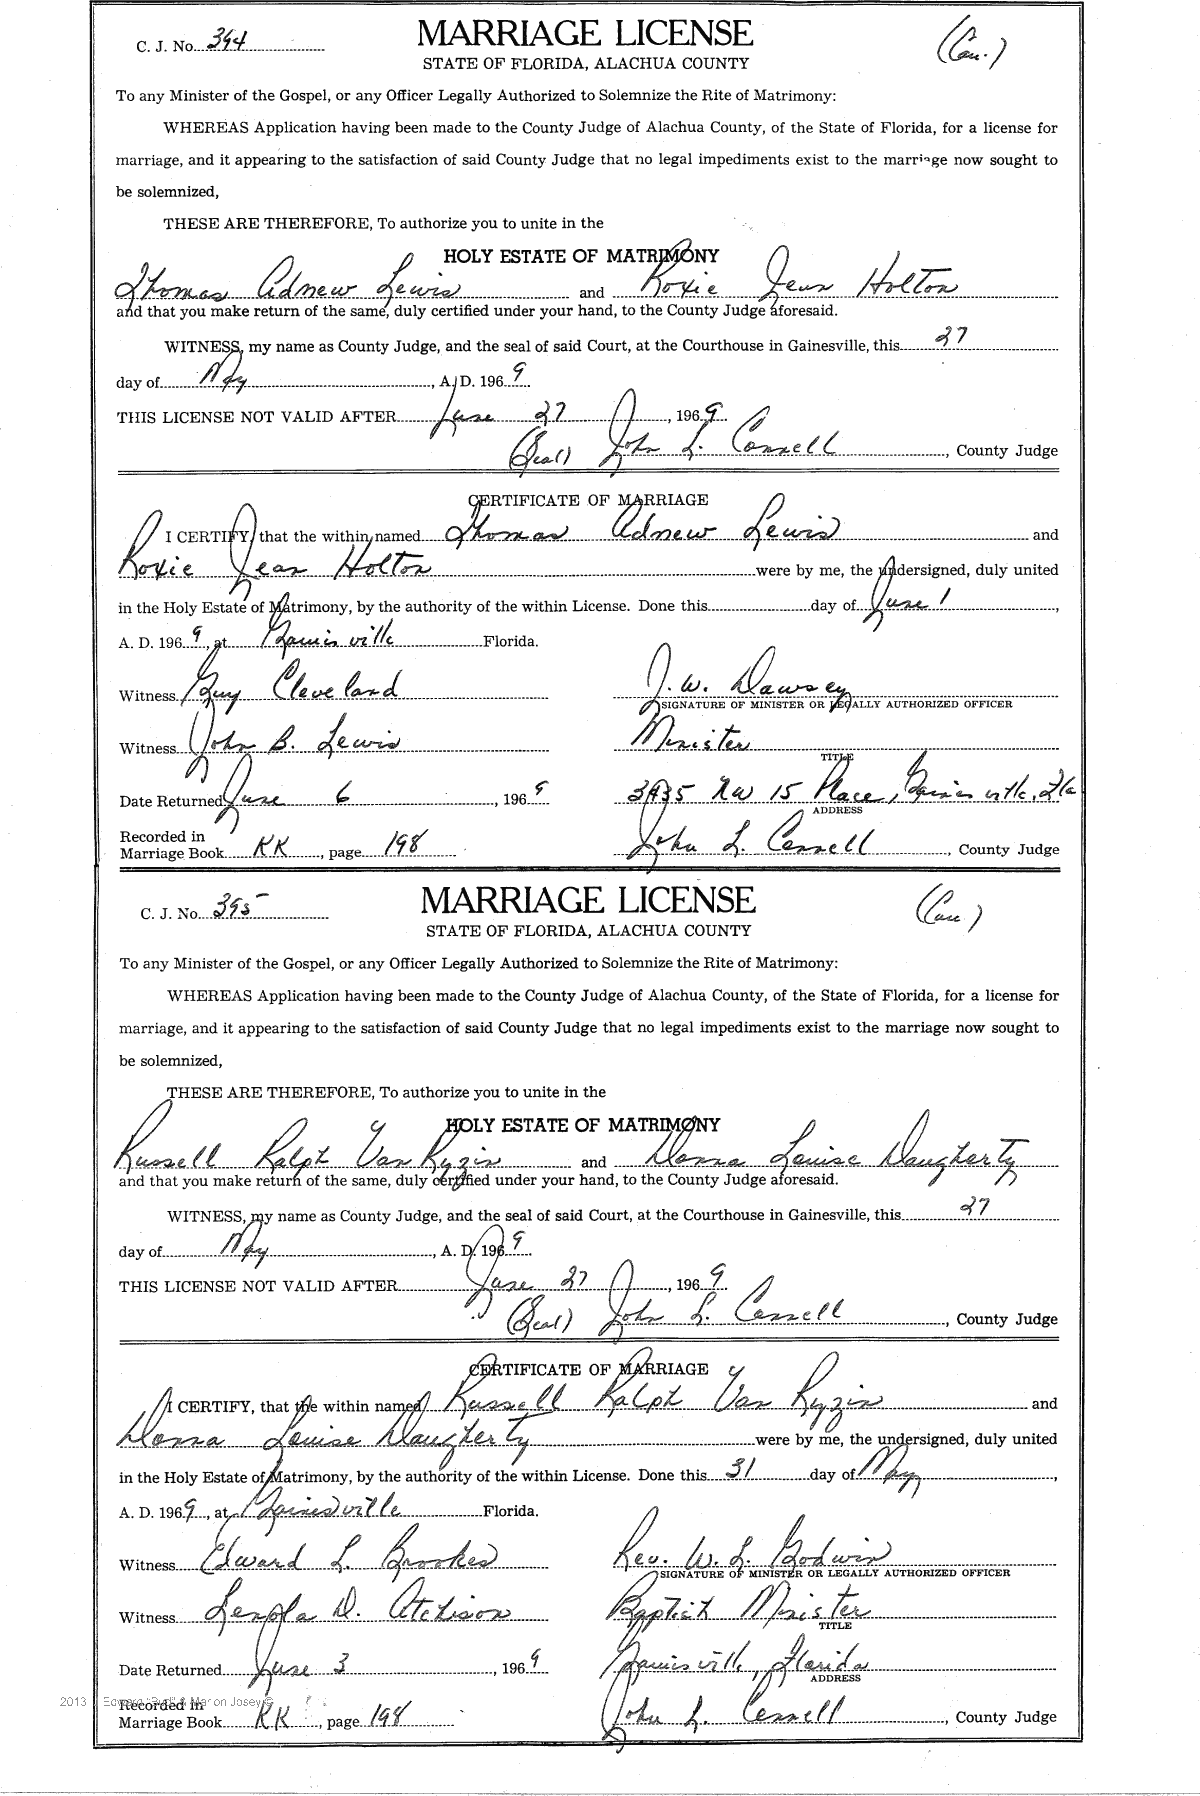 C. J. No. 394 MARRIAGE LICENSE (Cau.)
STATE OF FLORIDA, ALACHUA COUNTY
To any Minister of the Gospel, or any Officer Legally Authorized to Solemnize the Rite of Matrimony:
WHEREAS Application having been made to the County Judge of Alachua County, of the State of Florida, for a license for
marriage, and it appearing to the satisfaction of said County Judge that no legal impediments exist to the marriage now sought to
be solemnized,
THESE ARE THEREFORE, To authorize you to unite in the
HOLY ESTATE OF MATRIMONY
Thomas Adnew Lewis and Roxie Jean Holton
and that you make return of the same, duly certified under your hand, to the County Judge aforesaid.
WITNESS, my name as County Judge, and the seal of said Court, at the Courthouse in Gainesville, this 27
day of May, A. D. 1969.
THIS LICENSE NOT VALID AFTER June 27, 1969.
(Seal) John L. Connell, County Judge
CERTIFICATE OF MARRIAGE
I CERTIFY, that the within named Thomas Adnew Lewis and
Roxie Jean Holton were by me, the undersigned, duly united
in the Holy Estate of Matrimony, by the authority of the within License. Done this day of June 1,
A. D. 1969, at Gainisville Florida.
Witness Guy Cleveland J. W. Dawsey
SIGNATURE OF MINISTER OR LEGALLY AUTHORIZED OFFICER
Witness John B. Lewis Minister
TITLE
Date Returned June 6, 1969 NW 15 Place, Gainisville, Fla
ADDRESS
Recorded in
Marriage Book KK, page 198 John L. Connell, County Judge
C. J. No. 395 MARRIAGE LICENSE (Cau.)
STATE OF FLORIDA, ALACHUA COUNTY
To any Minister of the Gospel, or any Officer Legally Authorized to Solemnize the Rite of Matrimony:
WHEREAS Application having been made to the County Judge of Alachua County, of the State of Florida, for a license for
marriage, and it appearing to the satisfaction of said County Judge that no legal impediments exist to the marriage now sought to
be solemnized,
THESE ARE THEREFORE, To authorize you to unite in the
HOLY ESTATE OF MATRIMONY
Russell Ralph Van Ryzin and Donna Louise Daugherty
and that you make return of the same, duly certified under your hand, to the County Judge aforesaid.
WITNESS, my name as County Judge, and the seal of said Court, at the Courthouse in Gainesville, this 27
day of May, A. D. 1969.
THIS LICENSE NOT VALID AFTER June 27, 1969.
(Seal) John L. Connell, County Judge
CERTIFICATE OF MARRIAGE
I CERTIFY, that the within named Russell Ralph Van Ryzin and
Donna Louise Daugherty were by me, the undersigned, duly united
in the Holy Estate of Matrimony, by the authority of the within License. Done this 31 day of May,
A. D. 1969, at Gainesville Florida.
Witness Edward L. Brookes Rev. W. L. Godwin
SIGNATURE OF MINISTER OR LEGALLY AUTHORIZED OFFICER
Witness D. Atchison Baptist Minister
TITLE
Date Returned June 3, 1969 Gainisville, Florida
ADDRESS
2013 Edward "Bud" & Marion Josey ©
Recorded in
Marriage Book KK, page 198 John L. Connell, County Judge